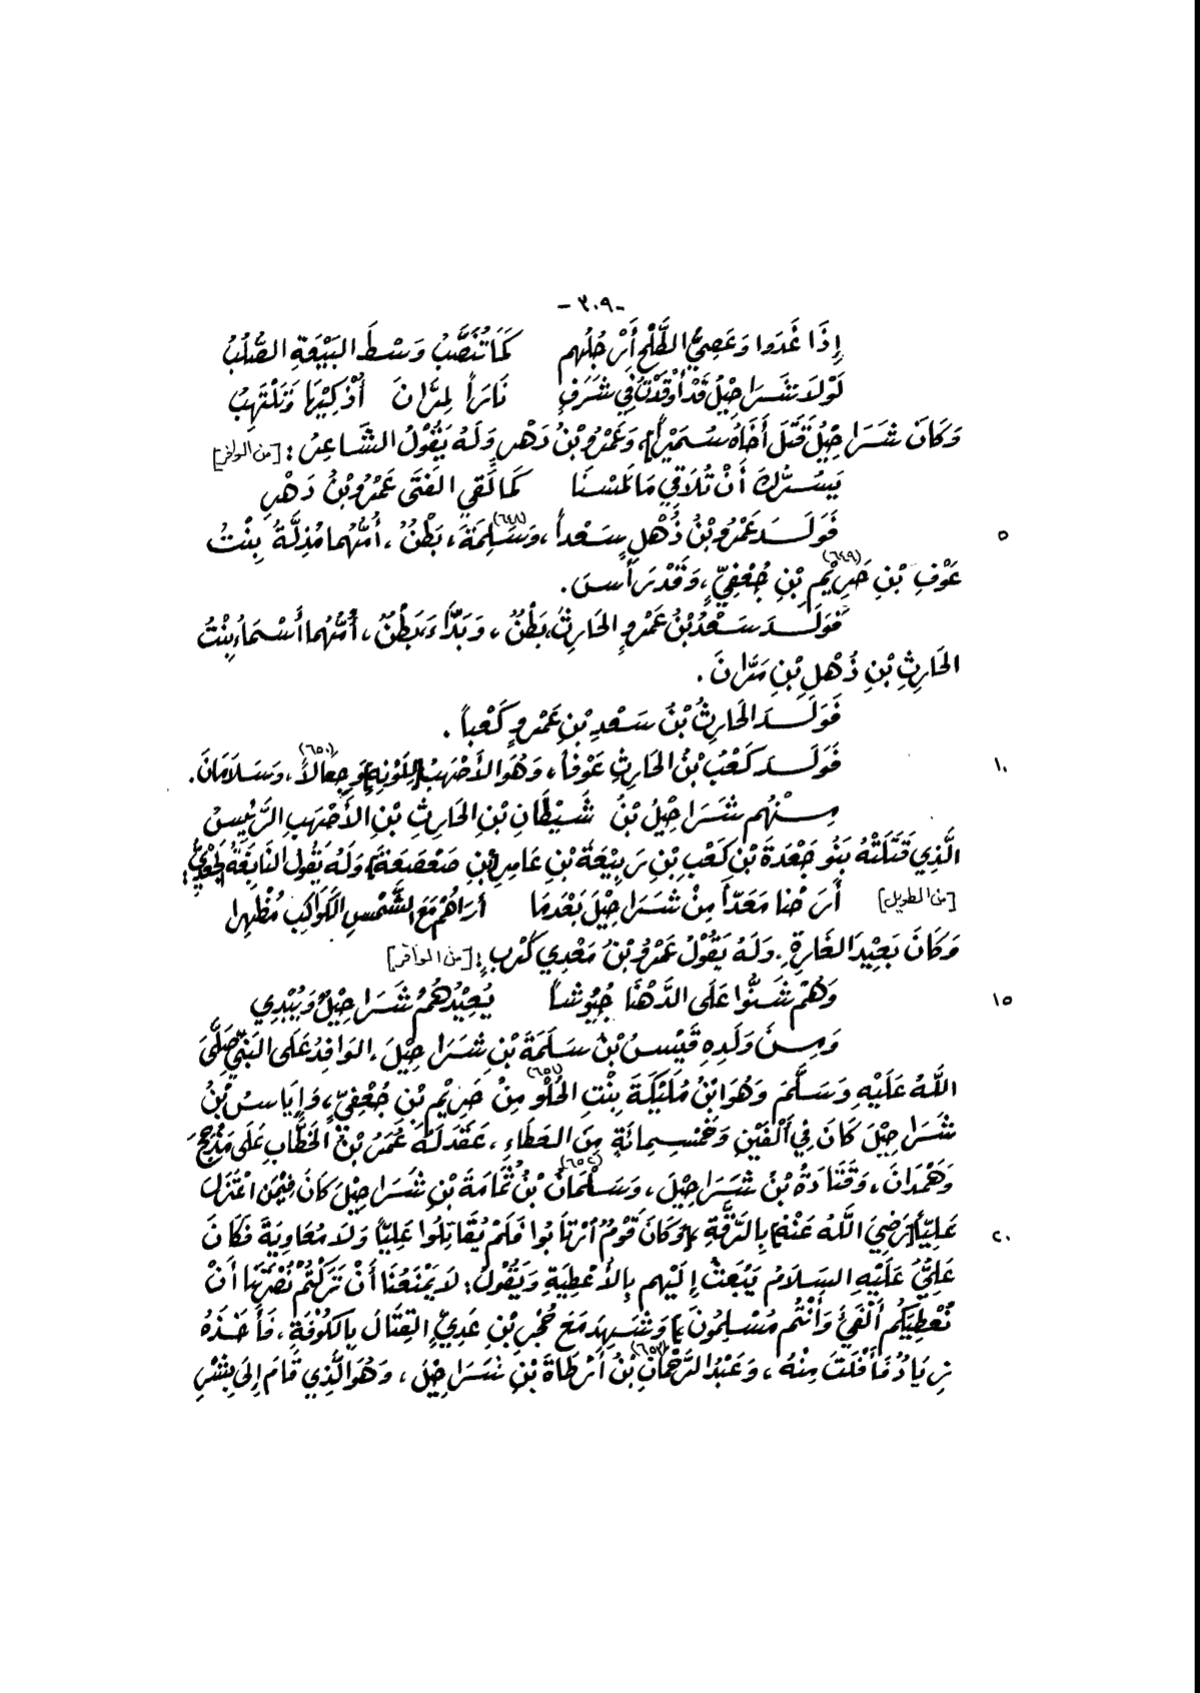 -٣٠٩-
إِذَا غَدَوا وَعَصِيُّ الطَّلْحِ أَرْجُلُهم كَمَا تُنَصَّبُ وَسْطَ البَيْعَةِ الصُّلُبُ
لَوْلاَ شَرَاحِيْلُ قَدْ أَوْقَدْتُ فِي شَرَفٍ نَارَاً لِمَرَّانَ أُذْكِيْهَا وَتَلْتَهِبُ
وَكَانَ شَرَاحِيْلُ قَتَلَ أَخَاهُ سُمَيْرَاً، وَعَمْرُو بْنُ دَهْرٍ وَلَهُ يَقُوْلُ الشَّاعِرُ: [من الوافر]
يَسُرُّكَ أَنْ تُلاَقِي مَا لَمَسْنَا كَمَا لَقِيَ الفَتَى عَمْرُو بْنُ دَهْرِ
٥ فَوَلَدَ عَمْرُو بْنُ ذُهْلٍ سَعْداً، وَسَلِمَةَ (٦٤٨)، بَطْنٌ، أُمُّهُما مُذِلَّةُ بِنْتُ
عَوْفِ بْنِ حَرِيْمِ (٦٤٩) بْنِ جُعْفِيٍّ، وَقَدْ رَأَسَ.
فَوَلَدَ سَعْدُ بْنُ عَمْرٍو الحَارِثَ، بَطْنٌ، وَبَدَّاءَ، بَطْنٌ، أُمُّهُما أَسْمَاءُ بِنْتُ
الحَارِثِ بْنِ ذُهْلِ بْنِ مَرَّانَ.
فَوَلَدَ الحَارِثُ بْنُ سَعْدِ بْنِ عَمْرٍو كَعْباً.
١٠ فَوَلَدَ كَعْبُ بْنُ الحَارِثِ عَوْفاً، وَهُوَ الأَصْهَبُ [لِلَوْنِهِ] وَجِعَالاً (٦٥٠)، وَسَلاَمَانَ.
مِنْهُم شَرَاحِيْلُ بْنُ شَيْطَانِ بْنِ الحَارِثِ بْنِ الأَصْهَبِ الرَّئِيْسُ
الَّذِي قَتَلَتْهُ بَنُو جَعْدَةَ بْنِ كَعْبِ بْنِ رَبِيْعَةَ بْنِ عَامِرِ [بْنِ صَعْصَعَةَ] وَلَهُ يَقُولُ النَّابِغَةُ الجَعْدِيُّ:
[من الطويل] أَرَحْنَا مَعَدّاً مِنْ شَرَاحِيْلَ بَعْدَمَا أَرَاهُمْ مَعَ الشَّمْسِ الكَوَاكِبَ مُظْهِرا
وَكَانَ بَعِيْدَ الغَارَةِ، وَلَهُ يَقُوْلُ عَمْرُو بْنُ مَعْدِي كَرِبٍ: [من الوافر]
١٥ وَهُمْ شَنُّوا عَلَى الدَّهْنَا جُيُوْشاً يُعِيْدُهُمُ شَرَاحِيْلٌ وَيُبْدِي
وَمِنْ وَلَدِهِ قَيْسُ بْنُ سَلَمَةَ بْنِ شَرَاحِيْلَ، الوَافِدُ عَلَى النَّبِيِّ صَلَّىَ
اللَّهُ عَلَيْهِ وَسَلَّمَ وَهُوَ ابْنُ مُلَيْكَةَ بِنْتِ الحُلْوِ (٦٥١) مِنْ حَرِيْمِ بْنِ جُعْفِيٍّ، وَإِيَاسُ بْنُ
شَرَاحِيْلَ كَانَ فِي أَلْفَيْنِ وَخَمْسِمِائَةٍ مِنَ العَطَاءِ، عَقَدَ لَهُ عُمَرُ بْنُ الخَطَّابِ عَلَى مَذْحِجَ
وَهَمْدَانَ، وَقَتَادَةُ بْنُ شَرَاحِيْلَ، وَسَلْمَانُ (٦٥٢) بْنُ ثُمَامَةَ بْنِ شَرَاحِيْلَ كَانَ فِيْمَنِ اعْتَزَلَ
٢٠ عَلِيّاً [رَضِيَ اللَّهُ عَنْهُ] بِالرَّقَّةِ [وَكَانَ قَوْمٌ ارْتَابُوا فَلَمْ يُقَاتِلُوا عَلِيّاً وَلاَ مُعَاوِيَةَ فَكَانَ
عَلِيٌّ عَلَيْهِ السَلاَمُ يَبْعَثُ إِلَيْهِم بِالأَعْطِيَةِ وَيَقُوْلُ: لاَ يَمْنَعُنَا أَنْ تَرَكْتُمْ نُصْرَتَنَا أَنْ
نُعْطِيَكُم الفَيْءَ وَأَنْتُم مُسْلِمُونَ] وَشَهِدَ مَعَ حُجْرِ بْنِ عَدِيٍّ القِتَالَ بِالكُوْفَةِ، فَأَخَذَهُ
زِيَادُ فَأَفْلَتَ مِنْهُ، وَعَبْدُ الرَّحْمَانِ (٦٥٣) بْنُ أَرْطَاةَ بْنِ شَرَاحِيْلَ، وَهُوَ الَّذِي قَامَ إِلَى بِشْرِ